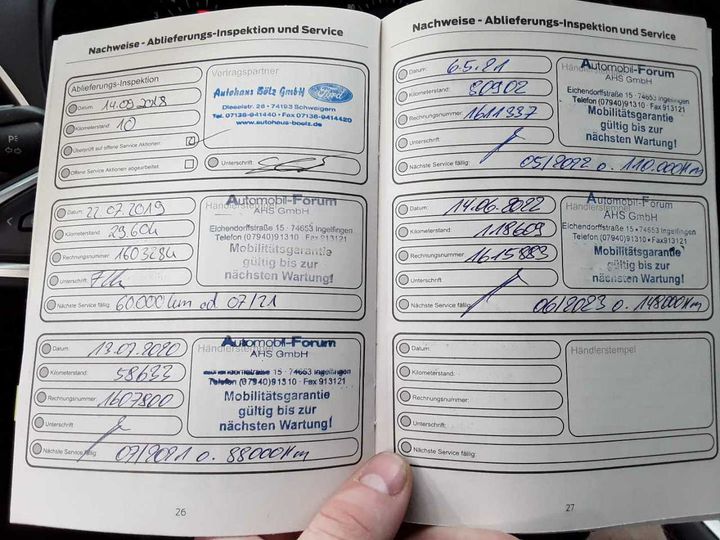 Nachweise - Ablieferungs-Inspektion und Service
Ablieferungs-Inspektion
Datum: 14.09.2018
Kilometerstand: 10
Überprüft auf offene Service Aktionen:
Offene Service Aktionen abgearbeitet:
Vertragspartner
Autohaus Bölz GmbH Ford
Dieselstr. 26 • 74193 Schwaigern
Tel. 07138-941440 • Fax 07138-9414420
www.autohaus-boelz.de
Unterschrift:
Datum: 22.07.2019
Kilometerstand: 29604
Rechnungsnummer: 1603284
Unterschrift:
Nächste Service fällig: 60000 km od 07/21
Händlerstempel
Automobil-Forum
AHS GmbH
Eichendorffstraße 15 · 74653 Ingelfingen
Telefon (07940) 91310 · Fax 913121
Mobilitätsgarantie
gültig bis zur
nächsten Wartung!
Datum: 13.07.2020
Kilometerstand: 58633
Rechnungsnummer: 1607800
Unterschrift:
Nächste Service fällig: 07/2021 o. 88000 Km
Händlerstempel
Automobil-Forum
AHS GmbH
15 · 74653 Ingelfingen
Telefon (07940) 91310 · Fax 913121
Mobilitätsgarantie
gültig bis zur
nächsten Wartung!
26
Nachweise - Ablieferungs-Inspektion und Service
Datum: 6.5.21
Kilometerstand: 80902
Rechnungsnummer: 1611337
Unterschrift:
Nächste Service fällig: 05/2022 o. 110.000 Km
Händlerstempel
Automobil-Forum
AHS GmbH
Eichendorffstraße 15 · 74653 Ingelfingen
Telefon (07940) 91310 · Fax 913121
Mobilitätsgarantie
gültig bis zur
nächsten Wartung!
Datum: 14.06.2022
Kilometerstand: 118609
Rechnungsnummer: 1615883
Unterschrift:
Nächste Service fällig: 06/2023 o. 148000 Km
Händlerstempel
Automobil-Forum
AHS GmbH
Eichendorffstraße 15 · 74653 Ingelfingen
Telefon (07940) 91310 · Fax 913121
Mobilitätsgarantie
gültig bis zur
nächsten Wartung!
Datum:
Kilometerstand:
Rechnungsnummer:
Unterschrift:
Nächste Service fällig:
Händlerstempel
27